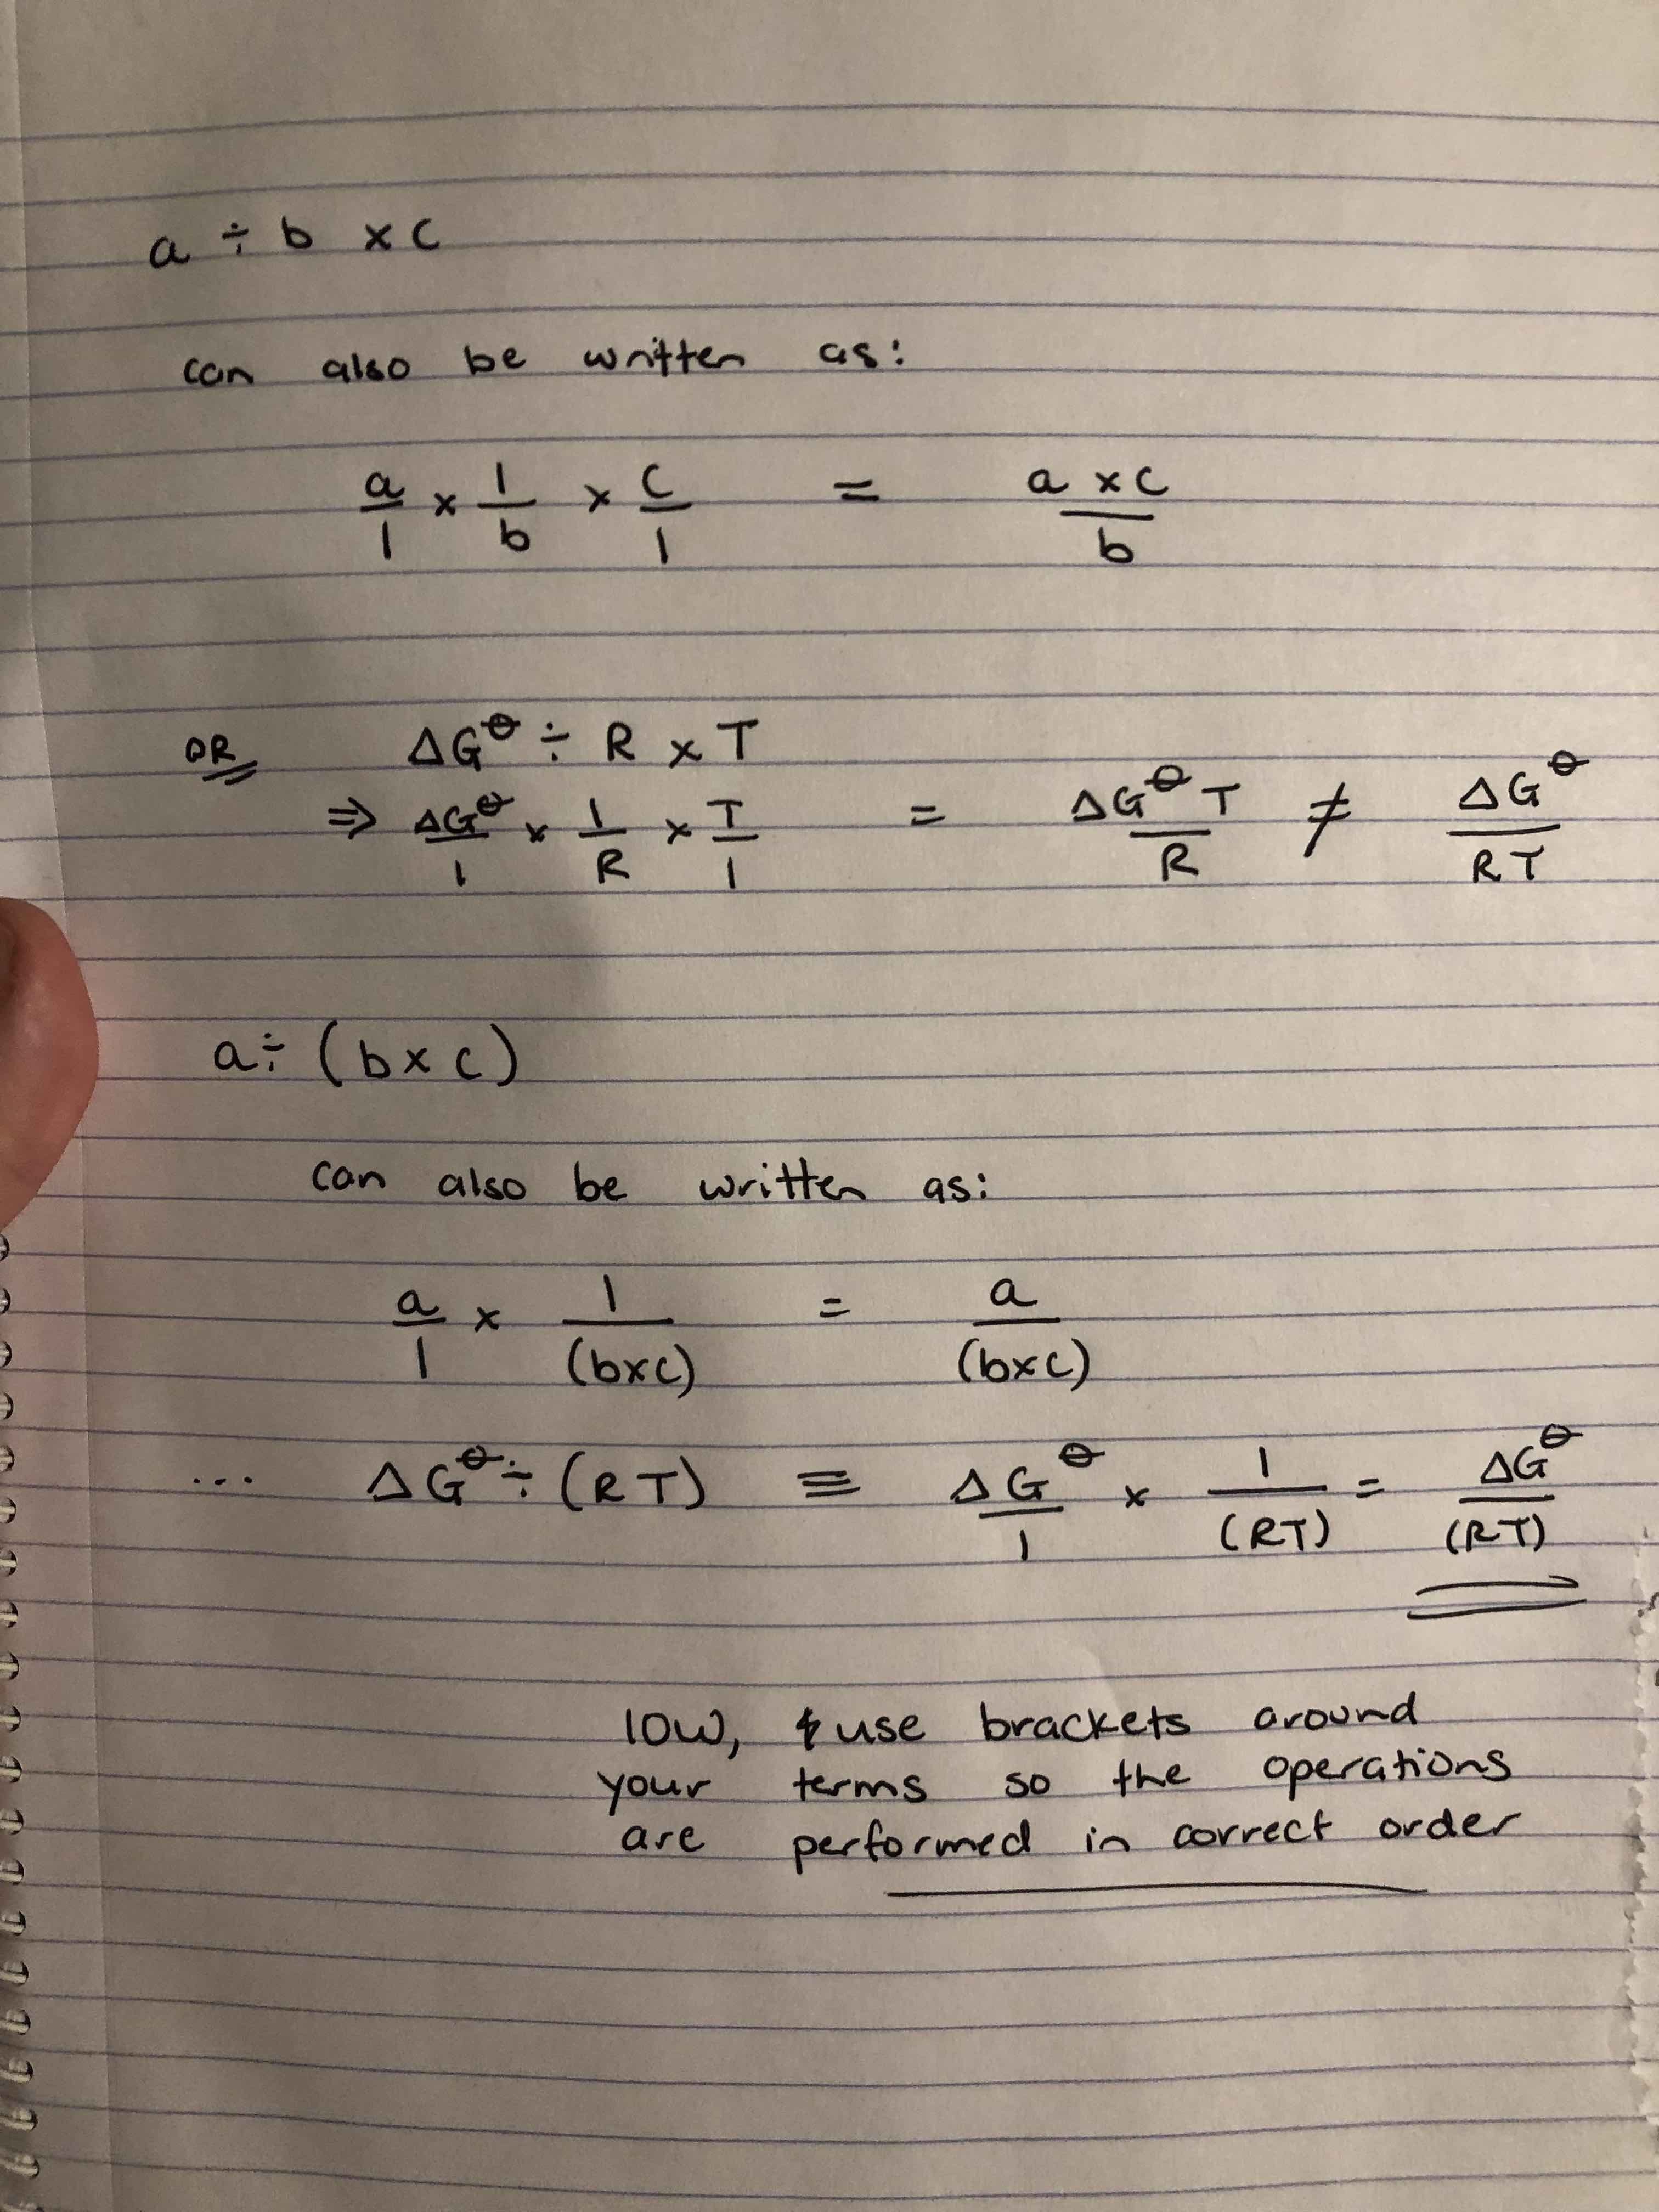 a ÷ b × c
can also be written as:
a/1 × 1/b × c/1 = a × c/b
OR ΔG^⦵ ÷ R × T
⇒ ΔG^⦵/1 × 1/R × T/1 = ΔG^⦵ T/R ≠ ΔG^⦵/RT
a ÷ (b × c)
can also be written as:
a/1 × 1/(b×c) = a/(b×c)
... ΔG^⦵ ÷ (RT) ≡ ΔG^⦵/1 × 1/(RT) = ΔG^⦵/(RT)
use brackets around
your terms so the operations
are performed in correct order